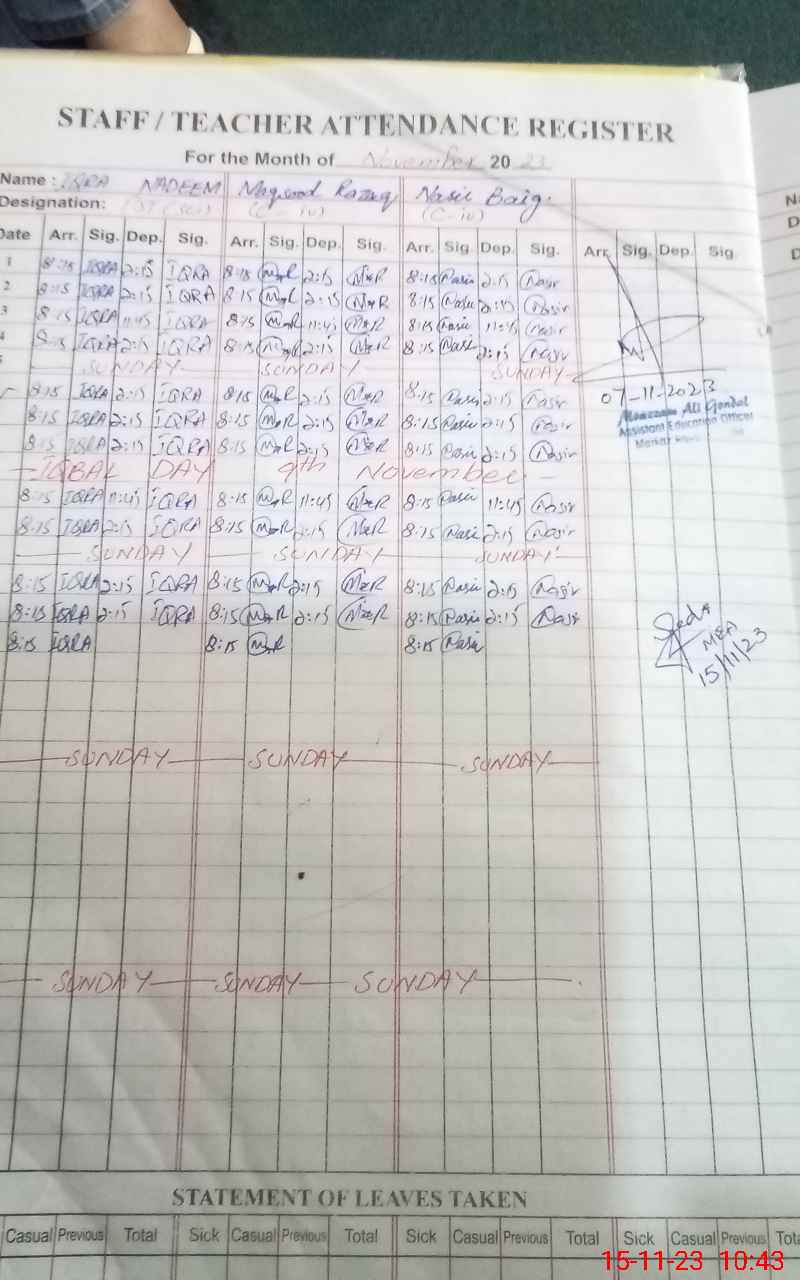 STAFF / TEACHER ATTENDANCE REGISTER
For the Month of November 2023
Name : IQRA NADEEM Maqsood Razaq Nasir Baig.
Designation: (C-iv) (C-iv)
Date Arr. Sig. Dep. Sig. Arr. Sig. Dep. Sig. Arr. Sig. Dep. Sig. Arr. Sig. Dep. Sig.
1 8:15 IQRA 2:15 IQRA 8:15 M*R 2:15 M*R 8:15 Nasir 2:15 Nasir
2 8:15 IQRA 2:15 IQRA 8:15 M*R 2:15 M*R 8:15 Nasir 2:15 Nasir
3 8:15 IQRA 11:45 IQRA 8:15 M*R 11:45 M*R 8:15 Nasir 11:45 Nasir
4 8:15 IQRA 2:15 IQRA 8:15 M*R 2:15 M*R 8:15 Nasir 2:15 Nasir
SUNDAY SUNDAY SUNDAY
8:15 IQRA 2:15 IQRA 8:15 M*R 2:15 M*R 8:15 Nasir 2:15 Nasir 07-11-2023
8:15 IQRA 2:15 IQRA 8:15 M*R 2:15 M*R 8:15 Nasir 2:15 Nasir Ali Gondal
Assistant Education Officer
8:15 IQRA 2:15 IQRA 8:15 M*R 2:15 M*R 8:15 Nasir 2:15 Nasir Markaz
IQBAL DAY 9th November
8:15 IQRA 11:45 IQRA 8:15 M*R 11:45 M*R 8:15 Nasir 11:45 Nasir
8:15 IQRA 2:15 IQRA 8:15 M*R 2:15 M*R 8:15 Nasir 2:15 Nasir
SUNDAY SUNDAY SUNDAY
8:15 IQRA 2:15 IQRA 8:15 M*R 2:15 M*R 8:15 Nasir 2:15 Nasir
8:15 IQRA 2:15 IQRA 8:15 M*R 2:15 M*R 8:15 Nasir 2:15 Nasir
8:15 IQRA 8:15 M*R 8:15 Nasir
MEA
15/11/23
SUNDAY SUNDAY SUNDAY
SUNDAY SUNDAY SUNDAY
STATEMENT OF LEAVES TAKEN
Casual Previous Total Sick Casual Previous Total Sick Casual Previous Total Sick Casual Previous
15-11-23 10:43